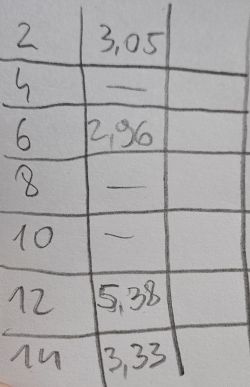 2 3,05
4 —
6 2,96
8 —
10 —
12 5,38
14 3,33